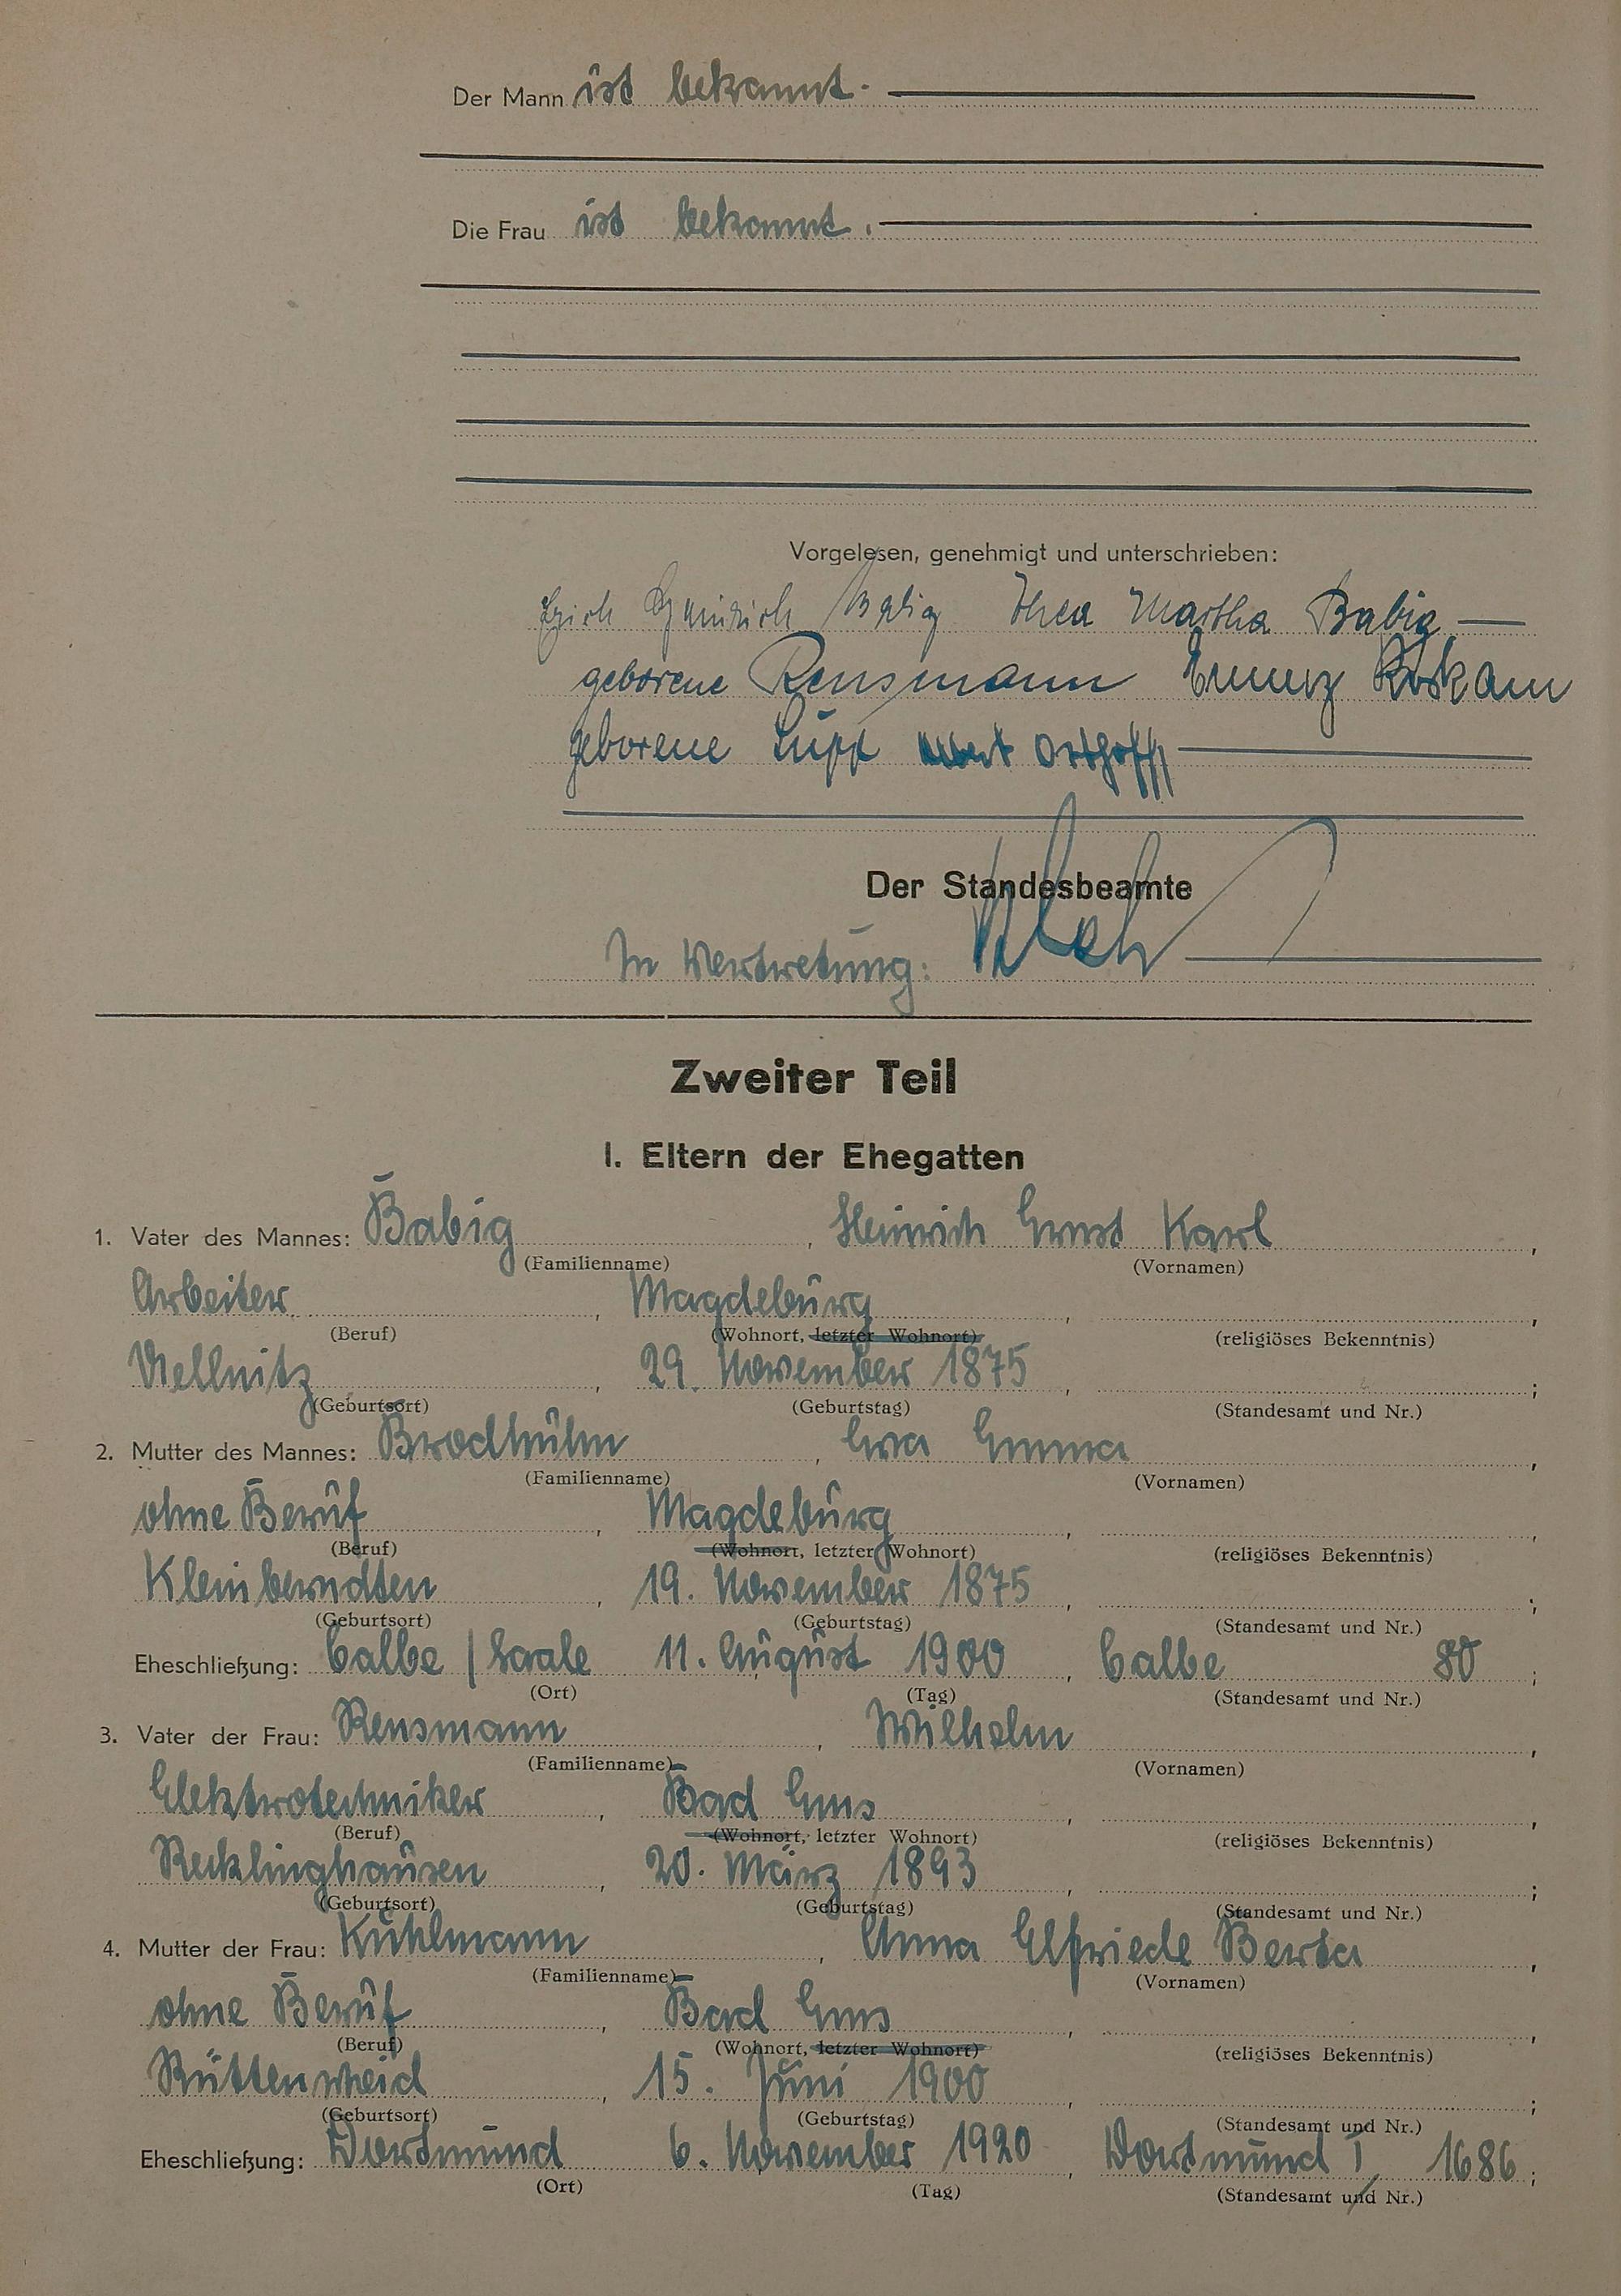 Der Mann ist bekannt.
Die Frau ist bekannt.
Vorgelesen, genehmigt und unterschrieben:
Erich Heinrich Babig Thea Martha Babig
geborene Rensmann Roskam
geborene Lupp Osthoff
Der Standesbeamte
In Vertretung:
Zweiter Teil
I. Eltern der Ehegatten
1. Vater des Mannes: Babig, Heinrich Ernst Karl,
(Familienname) (Vornamen)
Arbeiter, Magdeburg, ,
(Beruf) (Wohnort, letzter Wohnort) (religiöses Bekenntnis)
29. November 1875, ;
(Geburtsort) (Geburtstag) (Standesamt und Nr.)
2. Mutter des Mannes: Brodhuhn, Eva Emma,
(Familienname) (Vornamen)
ohne Beruf, Magdeburg, ,
(Beruf) (Wohnort, letzter Wohnort) (religiöses Bekenntnis)
Kleinberndten, 19. November 1875, ;
(Geburtsort) (Geburtstag) (Standesamt und Nr.)
Eheschließung: Calbe / Saale 11. August 1900, Calbe 80;
(Ort) (Tag) (Standesamt und Nr.)
3. Vater der Frau: Rensmann, Wilhelm,
(Familienname) (Vornamen)
Elektrotechniker, Bad Ems, ,
(Beruf) (Wohnort, letzter Wohnort) (religiöses Bekenntnis)
Recklinghausen, 20. März 1893, ;
(Geburtsort) (Geburtstag) (Standesamt und Nr.)
4. Mutter der Frau: Kuhlmann, Anna Elfriede Berta,
(Familienname) (Vornamen)
ohne Beruf, Bad Ems, ,
(Beruf) (Wohnort, letzter Wohnort) (religiöses Bekenntnis)
Rüttenscheid, 15. Juni 1900, ;
(Geburtsort) (Geburtstag) (Standesamt und Nr.)
Eheschließung: Dortmund 6. November 1920, Dortmund I, 1686;
(Ort) (Tag) (Standesamt und Nr.)